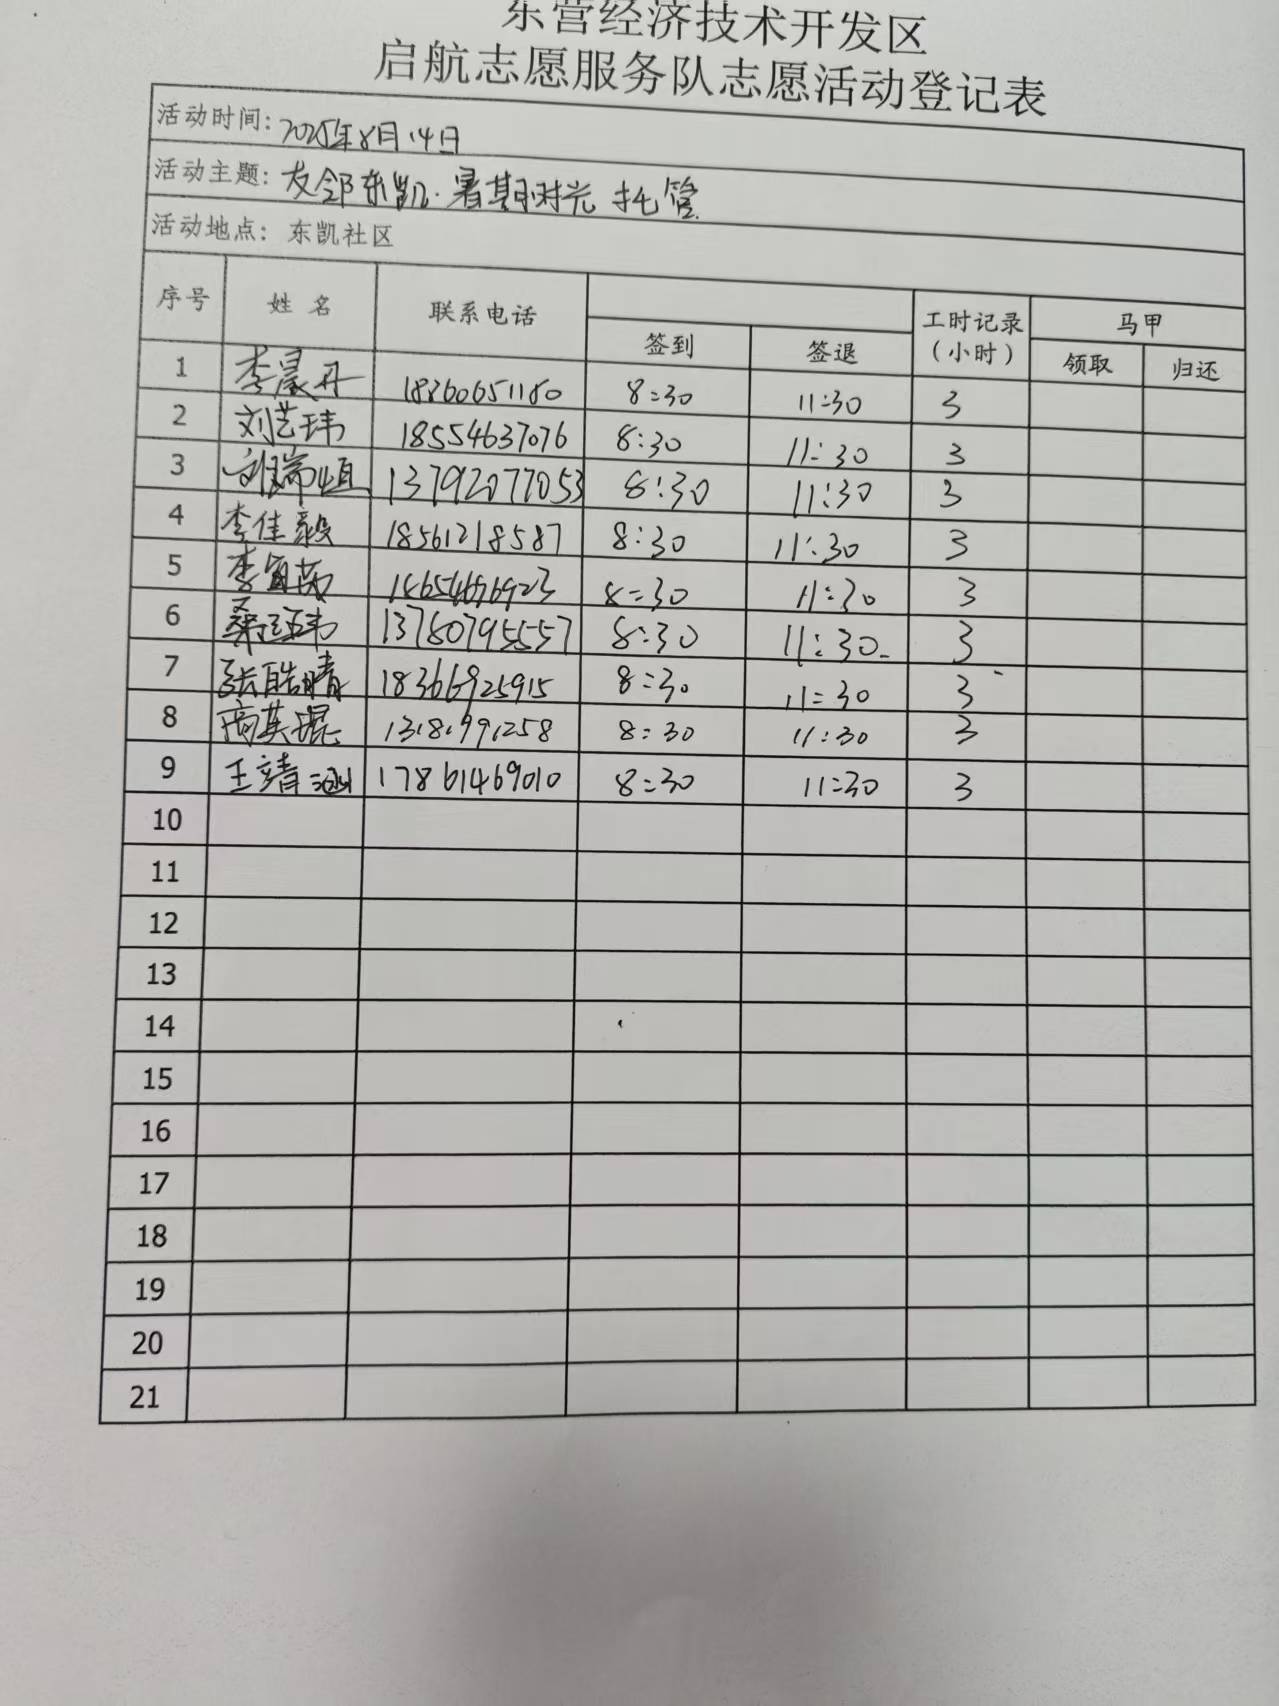 东营经济技术开发区
启航志愿服务队志愿活动登记表
活动时间: 2025年8月14日
活动主题: 友邻东凯·暑期时光 托管
活动地点: 东凯社区
序号 姓名 联系电话 签到 签退 工时记录(小时) 马甲 领取 归还
1 李晨丹 18260651180 8:30 11:30 3
2 刘艺玮 18554637076 8:30 11:30 3
3 刘瑞恒 13792077053 8:30 11:30 3
4 李佳毅 18561218587 8:30 11:30 3
5 李 8:30 11:30 3
6 13780795557 8:30 11:30 3
7 张皓晴 18366925915 8:30 11:30 3
8 商英琨 13181991258 8:30 11:30 3
9 王靖涵 17861469010 8:30 11:30 3
10
11
12
13
14
15
16
17
18
19
20
21